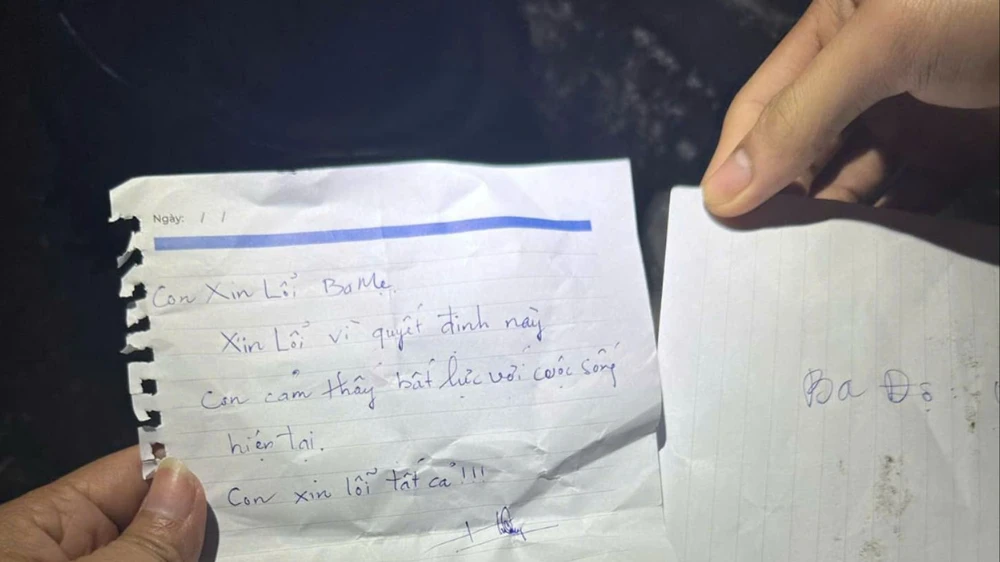 Ngày: / /
Con Xin Lổi Ba Mẹ.
Xin Lổi vì quyết định này
Con cảm thấy bất lực với cuộc sống
hiện tại.
Con xin lỗi tất cả!!!
Ba Độ: